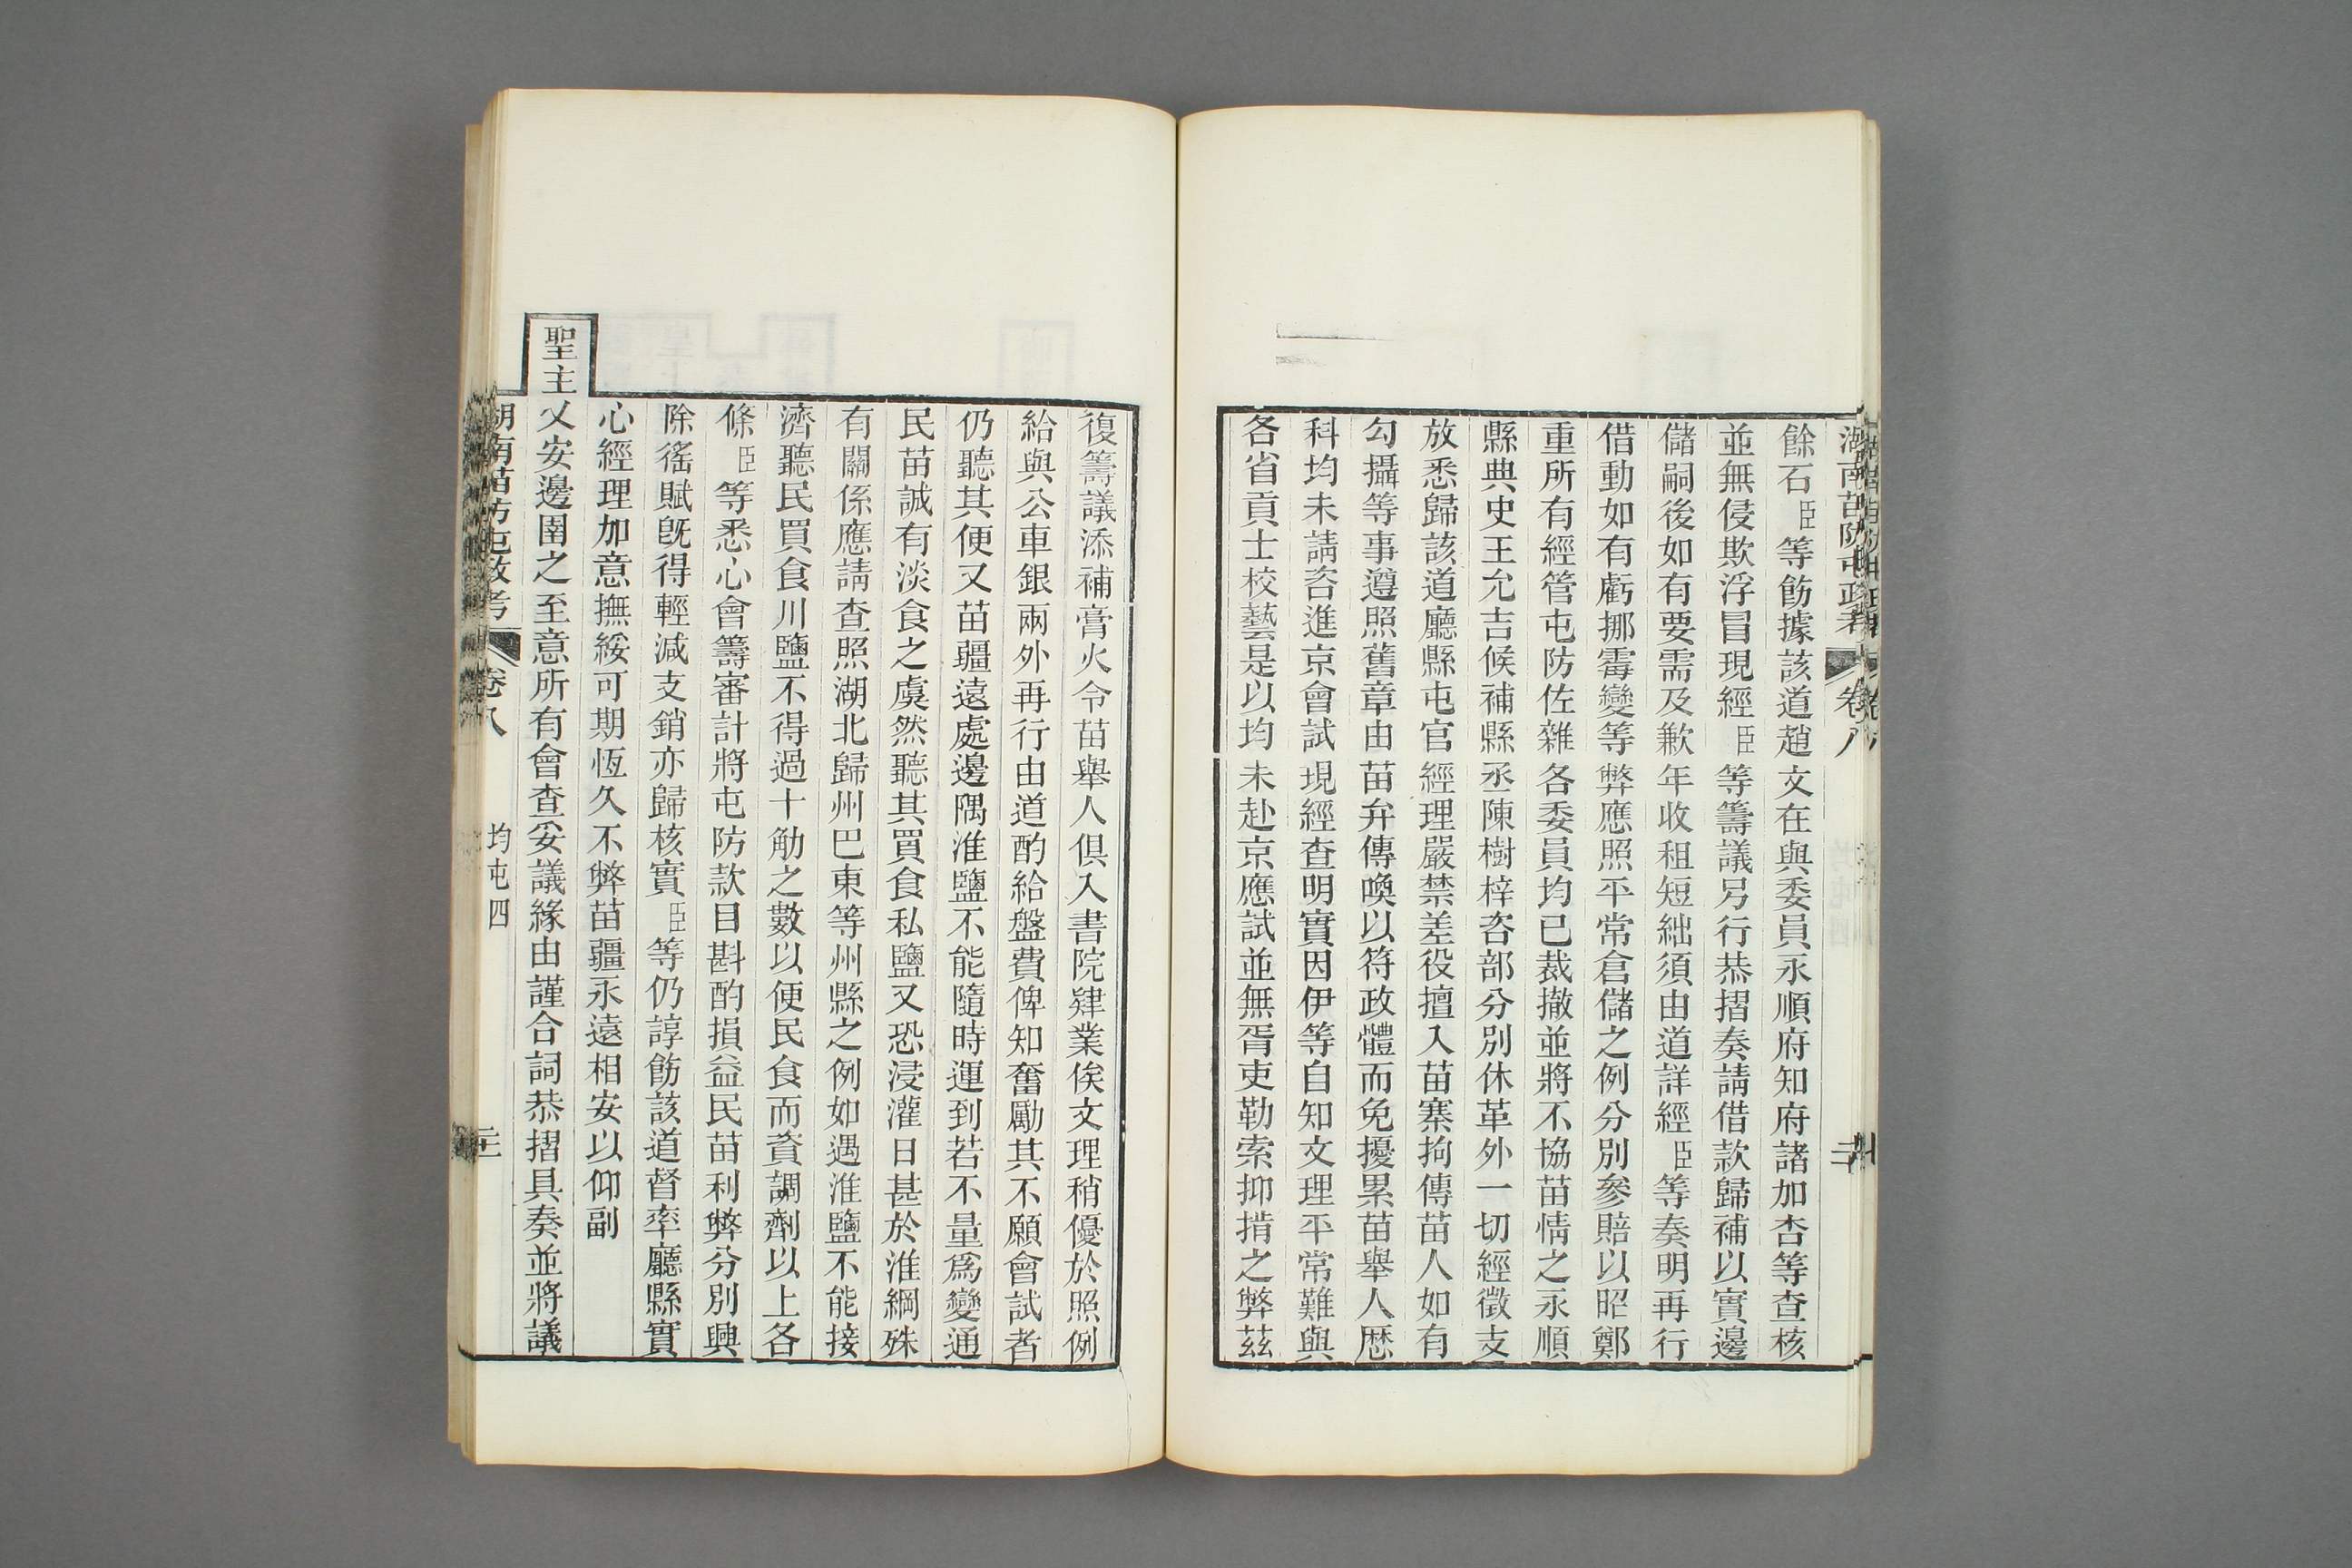 湖南苗防屯政考 卷八
餘石臣等飭據該道趙文在與委員永順府知府諸加杏等查核
並無侵欺浮冒現經臣等籌議另行恭摺奏請借款歸補以實邊
儲嗣後如有要需及歉年收租短絀須由道詳經臣等奏明再行
借動如有虧挪霉變等弊應照平常倉儲之例分別參賠以昭鄭
重所有經管屯防佐雜各委員均已裁撤並將不協苗情之永順
縣典史王允吉候補縣丞陳樹梓咨部分別休革外一切經徵支
放悉歸該道廳縣屯官經理嚴禁差役擅入苗寨拘傳苗人如有
勾攝等事遵照舊章由苗弁傳喚以符政體而免擾累苗舉人歷
科均未請咨進京會試現經查明實因伊等自知文理平常難與
各省貢士校藝是以均未赴京應試並無胥吏勒索抑掯之弊茲
復籌議添補膏火令苗舉人俱入書院肄業俟文理稍優於照例
給與公車銀兩外再行由道酌給盤費俾知奮勵其不願會試者
仍聽其便又苗疆遠處邊隅淮鹽不能隨時運到若不量爲變通
民苗誠有淡食之虞然聽其買食私鹽又恐浸灌日甚於淮綱殊
有關係應請查照湖北歸州巴東等州縣之例如遇淮鹽不能接
濟聽民買食川鹽不得過十觔之數以便民食而資調劑以上各
條臣等悉心會籌審計將屯防款目斟酌損益民苗利弊分別興
除徭賦旣得輕減支銷亦歸核實臣等仍諄飭該道督率廳縣實
心經理加意撫綏可期恆久不弊苗疆永遠相安以仰副
聖主乂安邊圉之至意所有會查妥議緣由謹合詞恭摺具奏並將議
湖南苗防屯政考 卷八 均屯四